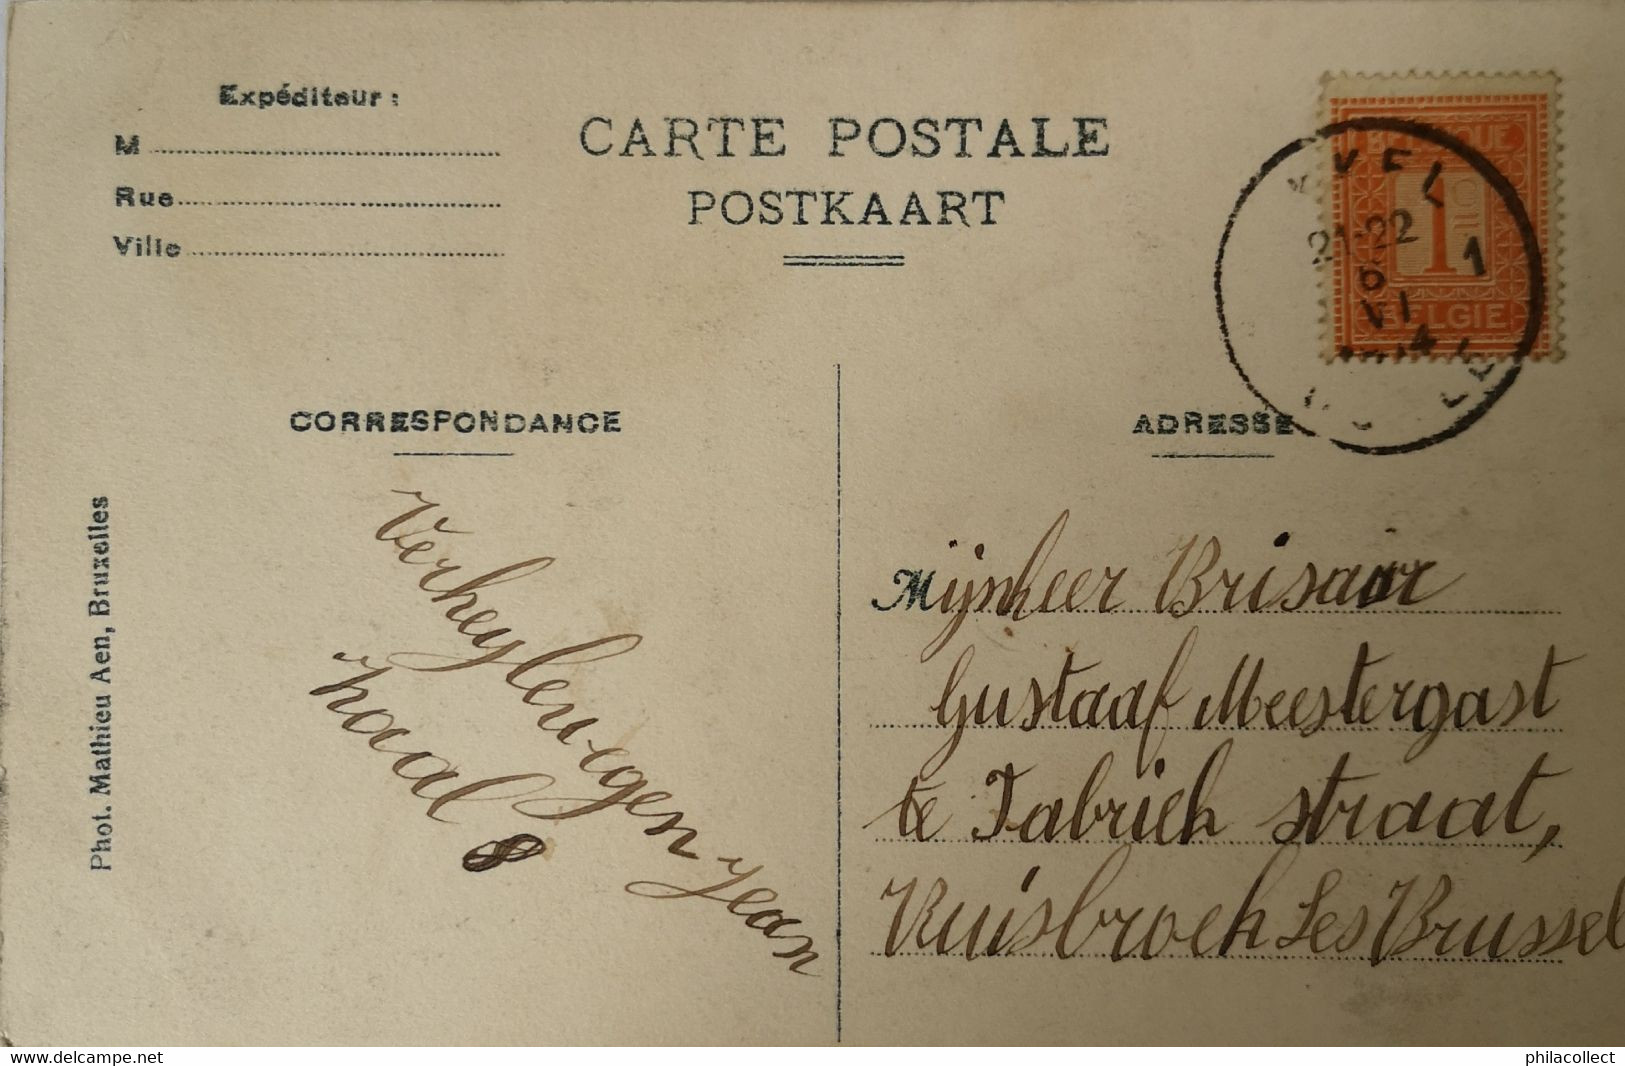 Expéditeur :
M
Rue
Ville
CARTE POSTALE
POSTKAART
BELGIQUE
1
BELGIE
21-22
6
VI
1
CORRESPONDANCE
ADRESSE
Phot. Mathieu Aen, Bruxelles
Verheylewegen Jean
zaal 8
Mijnheer Brisaer
Gustaaf Meestergast
te Fabriek straat,
Ruisbroek Les Brussel
delcampe.net
philacollect